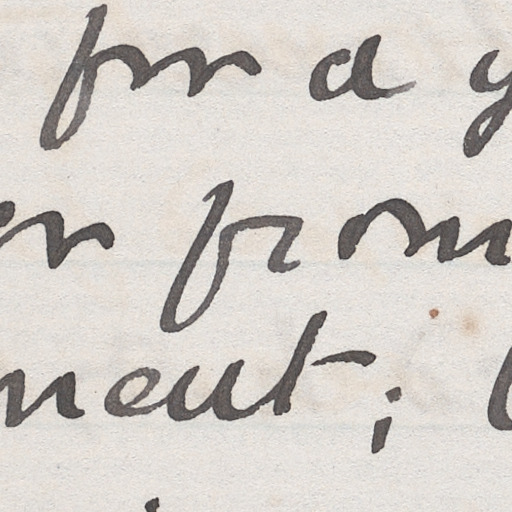 for a y
er from
ment;